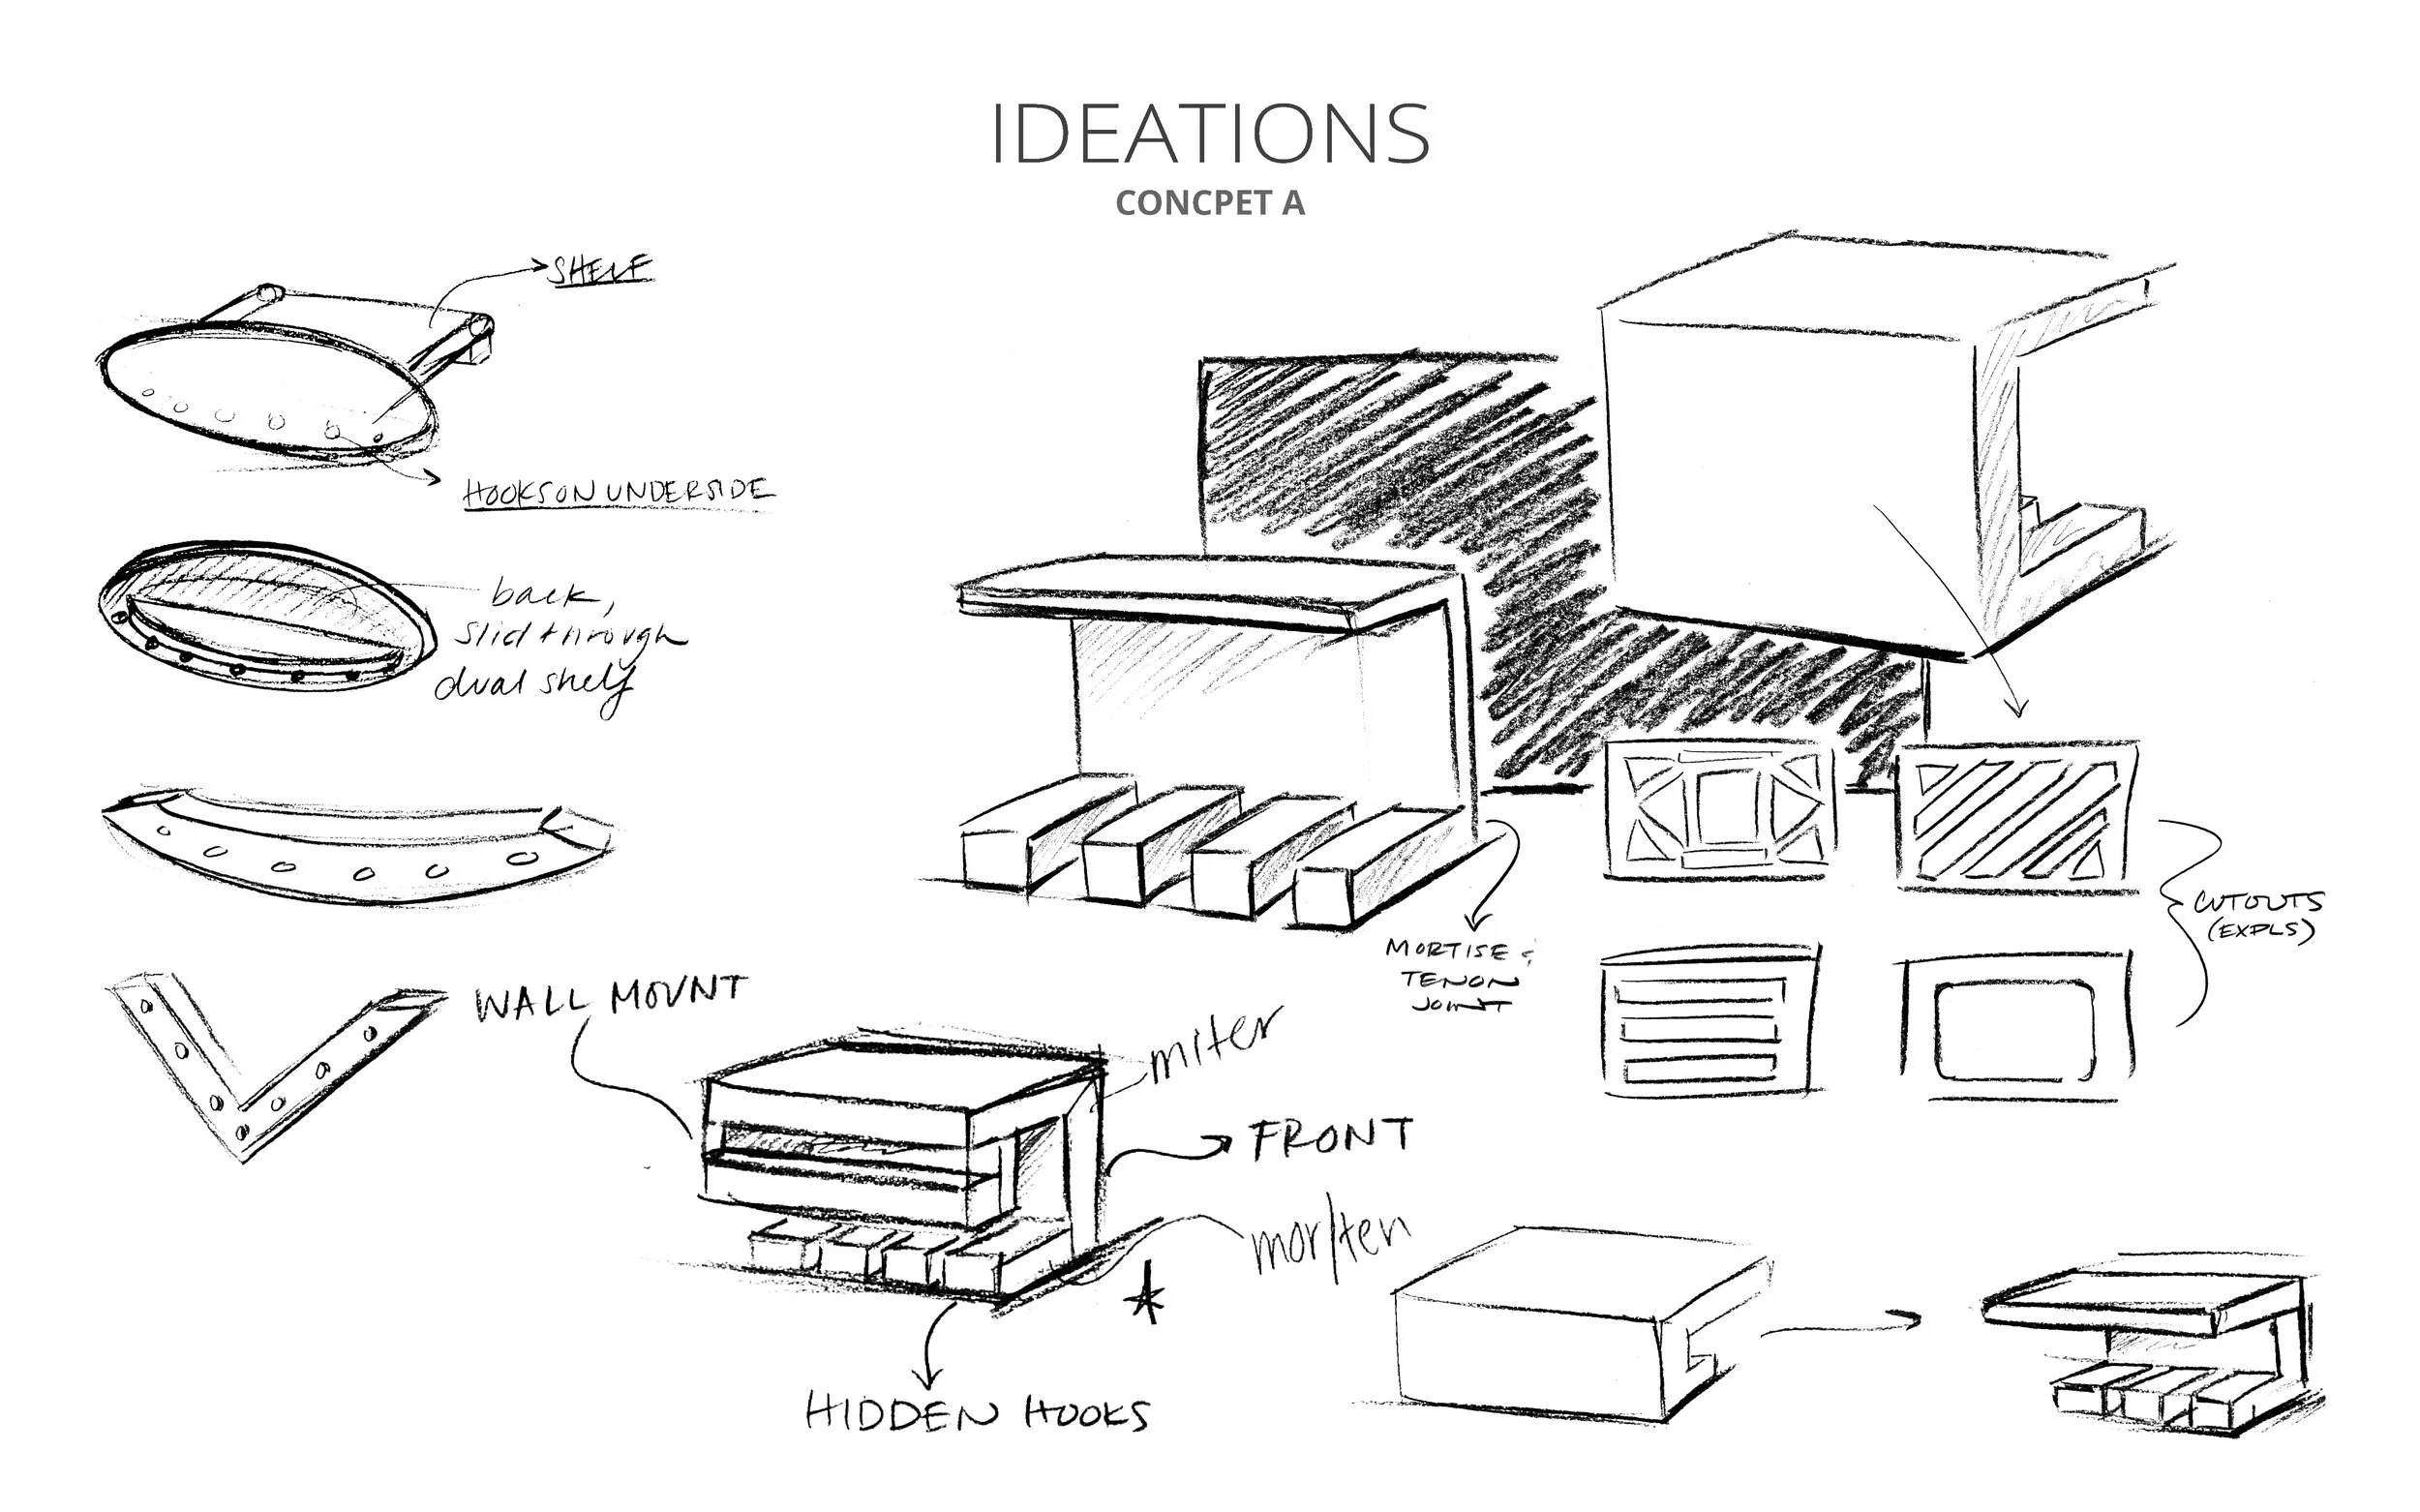 IDEATIONS
CONCPET A
SHELF
HOOKS ON UNDERSIDE
back,
slid through
dual shelf
MORTISE &
TENON
JOINT
CUTOUTS
(EXPLS)
WALL MOUNT
miter
FRONT
mor/ten
HIDDEN HOOKS